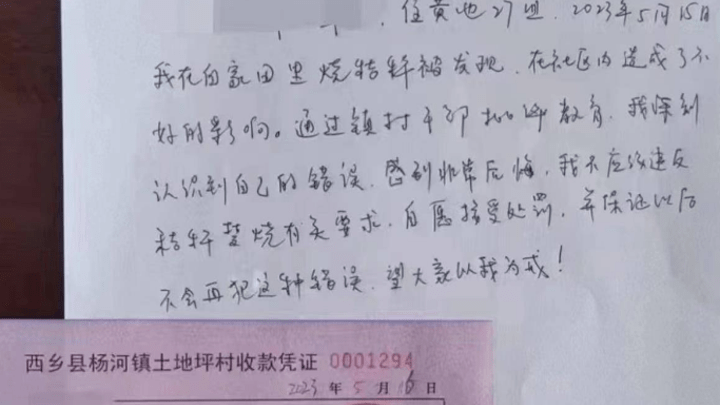 住黄池27组. 2023年5月15日
我在自家田里烧秸秆被发现. 在社区内造成了不
好的影响。通过镇村干部批评教育. 我深刻
认识到自己的错误. 感到非常后悔, 我不应该违反
秸秆焚烧有关要求. 自愿接受处罚, 并保证以后
不会再犯这种错误. 望大家以我为戒!
西乡县杨河镇土地坪村收款凭证 0001294
2023年5月16日